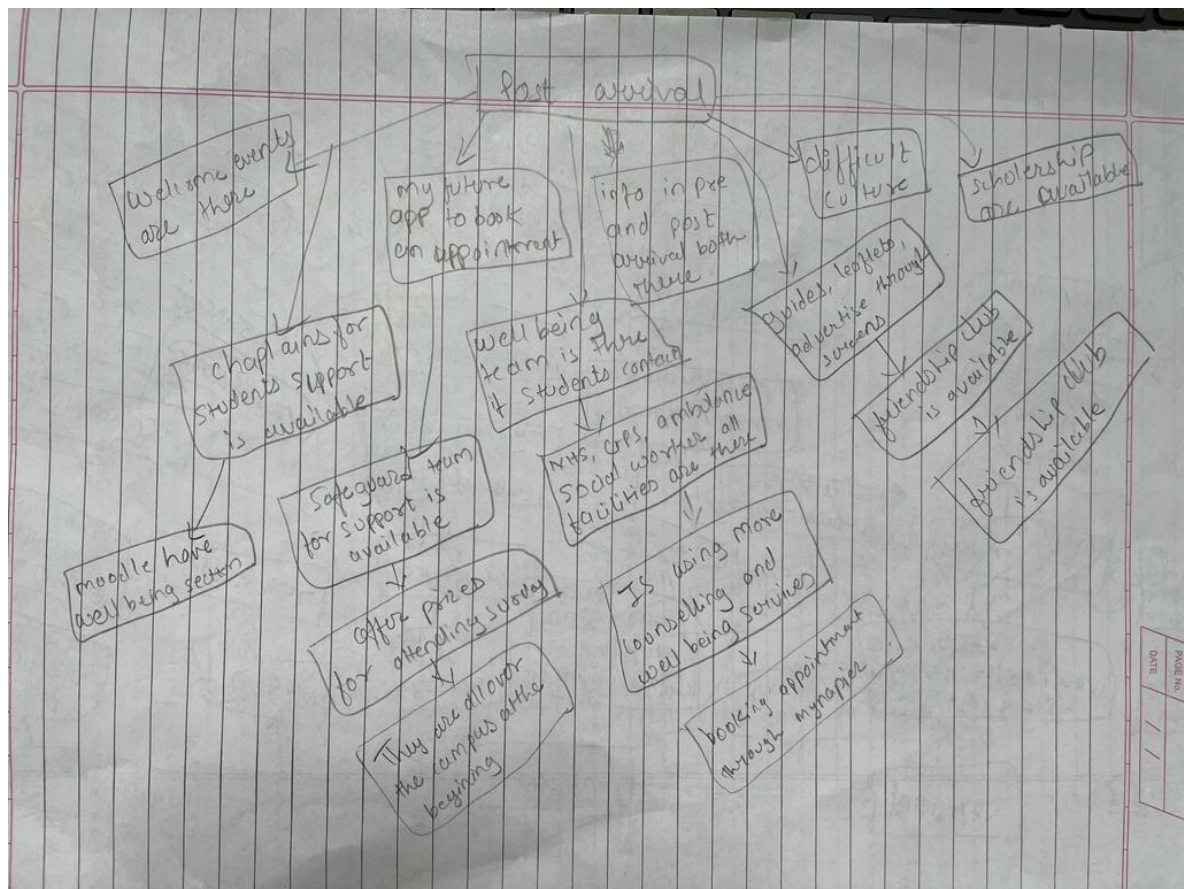 Post arrival
welcome events
are there
my future
app to book
an appointment
info in pre
and post
arrival both
there.
difficult
culture
scholership
are available
chaplains for
students support
is available
well being
team is there
if students contact
guides, leaflets,
advertise through
screens
friendship club
is available
friendship club
is available
Safeguard team
for support is
available
NHS, GPs, ambulance
social worker all
facilities are there
moodle have
well being section
offer prizes
for attending surday
IS using more
counselling and
well being services
They are all over
the campus at the
begining
booking appointment
through mynapier.
PAGE No.
DATE / /